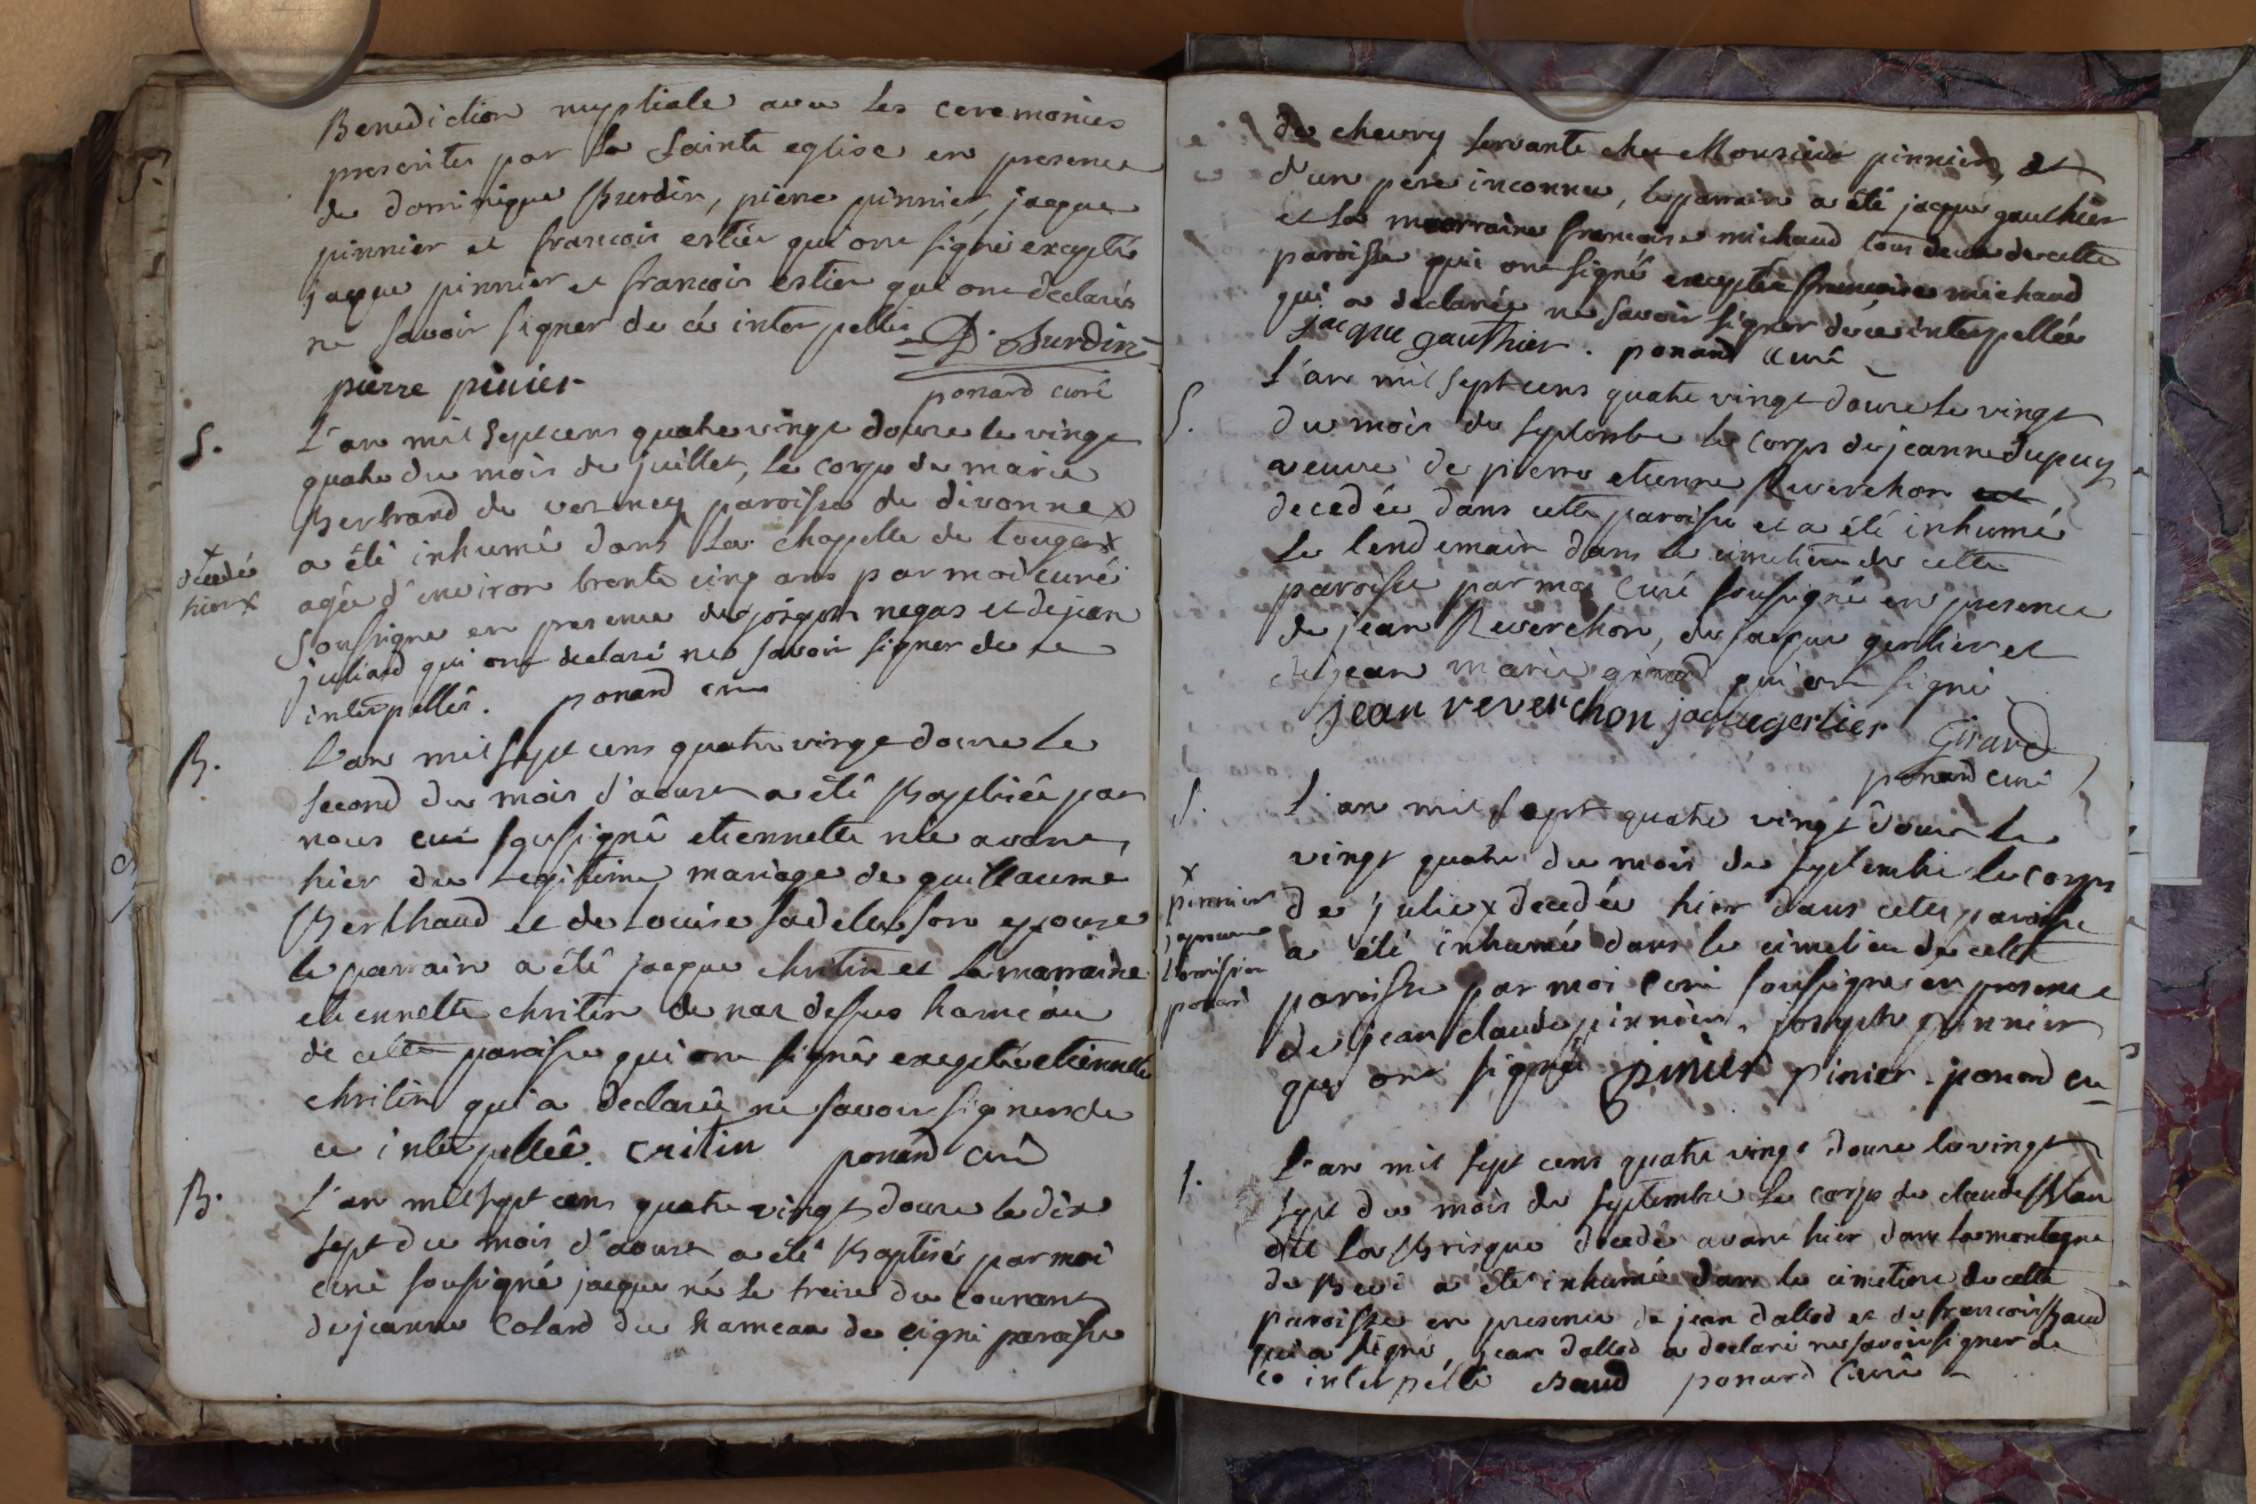 Benediction nuptiale avec les ceremonies
prescrites par la Sainte eglise en presence
de dominique Burdin, piere pinnier, jacque
pinnier et francois estier qui ont signé exceptés
jacque pinnier et francois estier qui ont declarés
ne savoir signer de cé interpellés D. Burdin
pierre pinier
ponard curé
S. L'an mil sept cens quatre vingt douze le vingt
quatre du mois de juillet, le corps de marie
Bertrand de vesenex paroisse de divonne x
a été inhumé dans la chapelle de
x decedé hier x
agée d'environ trente cinq ans par moi curé
Soussigné en presence de joseph negas et de jean
juliard qui ont declaré ne savoir signer de ce
interpellés. ponard curé
B. L'an mil sept cens quatre vingt douze le
second du mois d'aoust a été Baptisée par
nous curé soussigné etiennette née avant
hier du Legitime mariage de guillaume
Berthaud et de Louise son epouse
le parrain a été jacque chritin et la marraine
etiennette chritin de naz dessus hameau
de cette paroisse qui ont signés exceptée etiennette
chritin qui a declarée ne savoir signer de
ce interpellée. Critin ponard curé
B. L'an mil sept cens quatre vingt douze le dix
sept du mois d'aoust a été Baptisé par moi
curé soussigné jacque né le treize du courant
de jeanne Coland du hameau de paroisse
de chevry servante chez Monsieur pinnier, et
d'un pere inconnu, le parrain a été jacque gauthier
et la marraine francoise michaud tous deux de cette
paroisse qui ont signé exceptée francoise michaud
qui a declarée ne savoir signer de ce interpellée
jacque gauthier. ponard curé
S. L'an mil sept cens quatre vingt douze le vingt
du mois de septembre le corps de jeanne dupuy
veuve de pierre etienne Reverchon
decedée dans cette paroisse et a été inhumé
le lendemain dans le cimetiere de cette
paroisse par moi curé soussigné en presence
de jean Reverchon, de jacque gerlier et
de jean marie girard qui ont signé
jean reverchon jacque gerlier Girard
ponard curé
S. L'an mil sept quatre vingt douze le
vingt quatre du mois de septembre le corps
de julie x decedée hier dans cette paroisse
x pinnier
japrouve
l'omission
ponard
a été inhumé dans le cimetiere de cette
paroisse par moi curé soussigné en presence
de jean claude pinnier, joseph pinnier
qui ont signé pinier pinier. ponard cu
S. L'an mil sept cens quatre vingt douze le vingt
sept du mois de septembre le corps de claude
dit la Brisque decedé avant hier dans la montagne
de a été inhumé dans le cimetiere de cette
paroisse en presence de jean dallod et de francois Baud
qui a signé, jean dallod a declaré ne savoir signer de
ce interpellé Baud ponard Curé